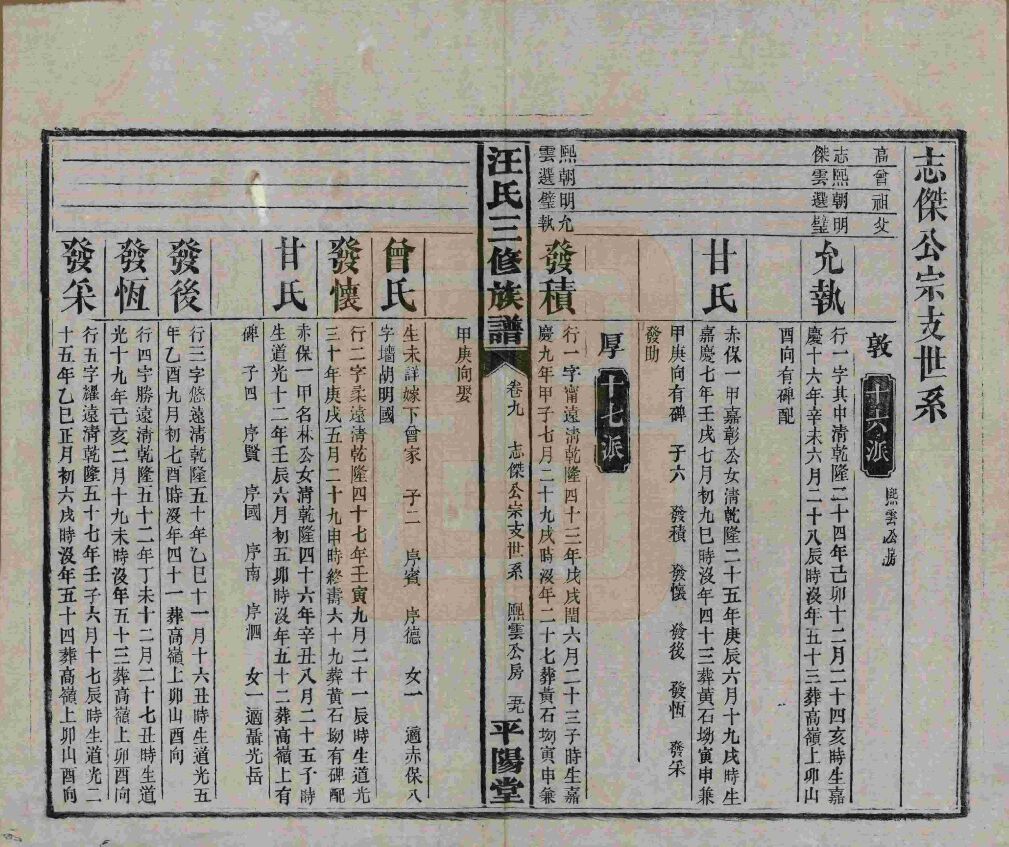 志傑公宗支世系
高曾祖父
志熙朝明
傑雲選璧
敦 十六派 熙雲公房
允執
行一字其中清乾隆二十四年己卯十二月二十四亥時生嘉
慶十六年辛未六月二十八辰時沒年五十三葬高嶺上卯山
酉向有碑配
甘氏
赤保一甲嘉彰公女清乾隆二十五年庚辰六月十九戌時生
嘉慶七年壬戌七月初九巳時沒年四十三葬黃石坳寅申兼
甲庚向有碑 子六 發積 發懷 發後 發恆 發采
發助
厚 十七派
熙朝明允
雲選璧執
發積
行一字甯遠清乾隆四十三年戊戌閏六月二十三子時生嘉
慶九年甲子七月二十九戌時沒年二十七葬黃石坳寅申兼
汪氏三修族譜 卷九 志傑公宗支世系 熙雲公房 平陽堂
甲庚向娶
曾氏
生未詳嫁下曾家 子二 序賓 序德 女一 適赤保八
字墻胡明國
發懷
行二字柔遠清乾隆四十七年壬寅九月二十一辰時生道光
三十年庚戌五月二十九申時終壽六十九葬黃石坳有碑配
甘氏
赤保一甲名林公女清乾隆四十六年辛丑八月二十五子時
生道光十二年壬辰六月初五卯時沒年五十二葬高嶺上有
碑 子四 序賢 序國 序南 序泗 女一適聶光岳
發後
行三字悠遠清乾隆五十年乙巳十一月十六丑時生道光五
年乙酉九月初七酉時沒年四十一葬高嶺上卯山酉向
發恆
行四字勝遠清乾隆五十二年丁未十二月二十七丑時生道
光十九年己亥二月十九未時沒年五十三葬高嶺上卯酉向
發采
行五字耀遠清乾隆五十七年壬子六月十七辰時生道光二
十五年乙巳正月初六戌時沒年五十四葬高嶺上卯山酉向